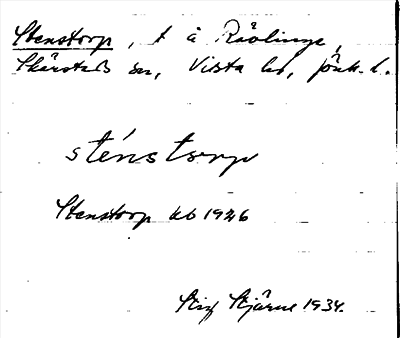 Stenstorp, t å Råölinge,
Skärstads sn, Vista hd, Jönk. l.
sténstorp
Stenstorp kb 1926
Stig Stjärne 1934.